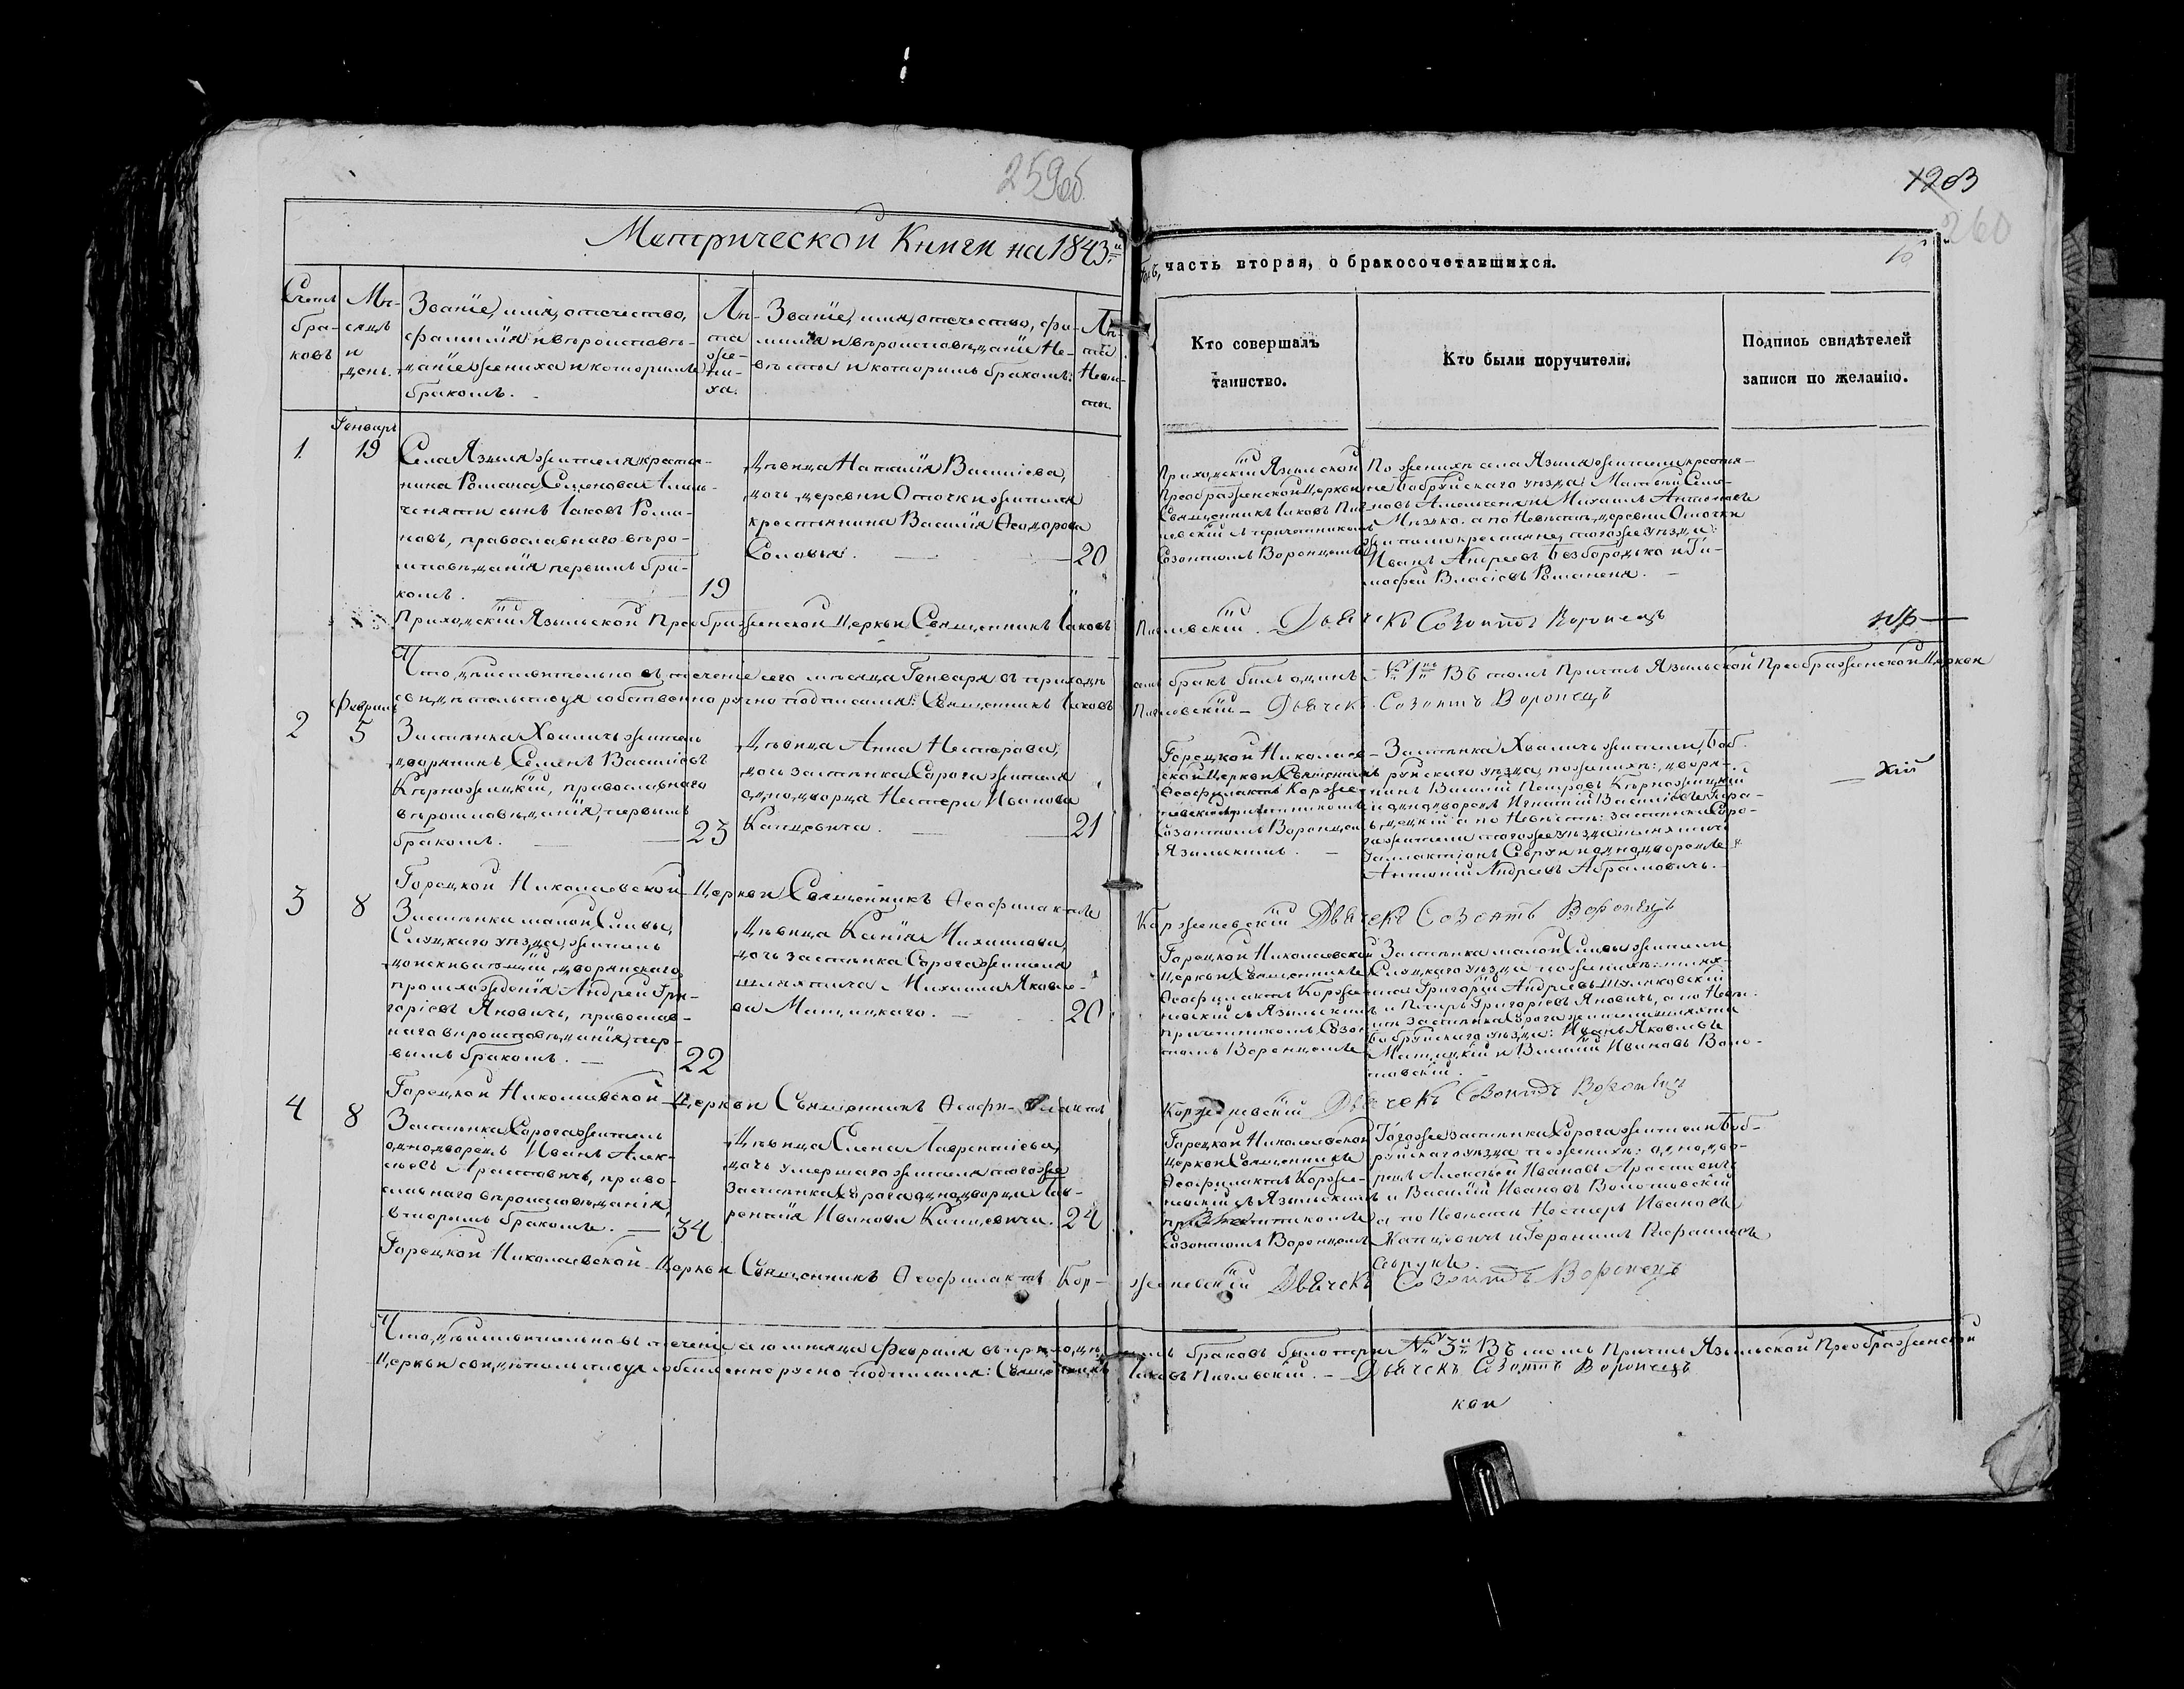 259об.
1203
260
Метрической Книги на 1843й
годъ, часть вторая, о бракосочетавшихся.
Счетъ
бра-
ковъ
Мѣ-
сяцъ
и
день.
Званіе, имя, отечество,
фамилія и вѣроисповѣ-
даніе жениха и которымъ
бракомъ.
Лѣ-
та
же-
ни-
ха.
Званіе, имя, отечество, фа-
милія и вѣроисповѣданіе не-
вѣсты и которымъ бракомъ.
Лѣ-
та
Невѣ-
сты.
Кто совершалъ
таинство.
Кто были поручители.
Подпись свидѣтелей
записи по желанію.
Генварь
1
19
Села Языля жителя крестья-
нина Романа Семенова
сынъ Іаковъ Рома-
новъ, православнаго вѣро-
исповѣданія первымъ бра-
комъ.
19
Дѣвица Наталія Василіева,
дочь деревни Оточки жителя
крестьянина Василія Ѳеодорова
Соловья.
20
Приходскій Языльской
Преображенской Церкви
Священникъ Іаковъ
съ причетникомъ
Созонтомъ Воронцомъ
По женихѣ села Языля жители крестья-
не Бобруйскаго уѣзда: Матвей Семе-
новъ и Михаилъ Антоновъ
а по Невѣстѣ деревни Оточки
жители крестьяне, тогоже уѣзда:
Иванъ Андреевъ Безбородько и Ти-
мофей Власіевъ Романеня.
Приходскій Языльской Преображенской Церкви Священникъ Іаковъ
Дьячекъ Созонтъ Воронецъ
Что дѣйствительно въ теченіе сего мѣсяца Генваря въ приходѣ
семъ бракъ былъ одинъ № 1й Въ томъ Причтъ Языльской Преображенской Церкви
свидѣтельствуя собственноручно подписали: Священникъ Іаковъ
Дьячекъ Созонтъ Воронецъ
Февраль
2
5
Застѣнка Хваличъ житель
дворянинъ Семенъ Василіевъ
Кѣрножицкій, православнаго
вѣроисповѣданія, первымъ
бракомъ.
23
Дѣвица Анна Нестерова,
дочь застѣнка Сорога жителя
однодворца Нестера Иванова
Капцевича.
21
Горецкой Николаев-
ской Церкви Священникъ
Ѳеофилактъ Корже-
невскій съ причетникомъ
Созонтомъ Воронцомъ
Языльскимъ.
Застѣнка Хваличъ жители Боб-
руйскаго уѣзда, по женихѣ: дворя-
нинъ Василій Петровъ Кѣрножицкій
и однодворецъ Игнатій Василіевъ
а по Невѣстѣ: застѣнка Соро-
га жители тогоже уѣзда шляхтичъ
Галактіонъ Севрукъ и однодворецъ
Антоній Андреевъ Абрамовичъ.
Горецкой Николаевской Церкви Священникъ Ѳеофилактъ
Корженевскій Дьячекъ Созонтъ Воронецъ
3
8
Застѣнка малой Сливы,
Слуцкаго уѣзда, житель
доискивающій дворянскаго
происхожденія Андрей Гри-
горіевъ Яновичъ, православ-
наго вѣроисповѣданія, пер-
вымъ бракомъ.
22
Дѣвица Ксенія Михаилова,
дочь застѣнка Сорога жителя
шляхтича Михаила Яковле-
ва Матицкаго.
20
Горецкой Николаевской
Церкви Священникъ
Ѳеофилактъ Корже-
невскій съ Языльскимъ
причетникомъ Созон-
томъ Воронцомъ
Застѣнка малой Сливы жители
Слуцкаго уѣзда по женихѣ: шлях-
тичи Григорій Андреевъ
и Петръ Григоріевъ Яновичъ, а по Невѣ-
стѣ застѣнка Сорога жители шляхтичи
Бобруйскаго уѣзда: Иванъ Яковлевъ
Матицкій и Василій Ивановъ Воло-
товскій.
Горецкой Николаевской Церкви Священникъ Ѳеофи-лактъ
Корженевскій Дьячекъ Созонтъ Воронецъ
4
8
Застѣнка Сорога житель
однодворецъ Иванъ Алек-
сѣевъ Арастовичъ, право-
славнаго вѣроисповѣданія,
вторымъ бракомъ.
34
Дѣвица Елена Лаврентіева,
дочь умершаго жителя тогоже
застѣнка Сорога однодворца Лав-
рентія Иванова Капцевича.
24
Горецкой Николаевской
Церкви Священникъ
Ѳеофилактъ Корже-
невскій съ Языльскимъ
причетникомъ
Созонтомъ Воронцомъ
Тогоже застѣнка Сорога жители Боб-
руйскаго уѣзда по женихѣ: однодво-
рецъ Алексѣй Ивановъ Арастовичъ
и Василій Ивановъ Волотовскій
а по Невѣстѣ Нестеръ Ивановъ
Капцевичъ и Геронимъ
Севрукъ.
Горецкой Николаевской Церкви Священникъ Ѳеофилактъ Кор-
женевскій Дьячекъ Созонтъ Воронецъ
Что дѣйствительно въ теченіе сего мѣсяца Февраля въ приходѣ
семъ браковъ было три № 3й Въ томъ Причтъ Языльской Преображенской
Церкви свидѣтельствуя собственноручно подписали: Священникъ
Іаковъ Дьячекъ Созонтъ Воронецъ
кви